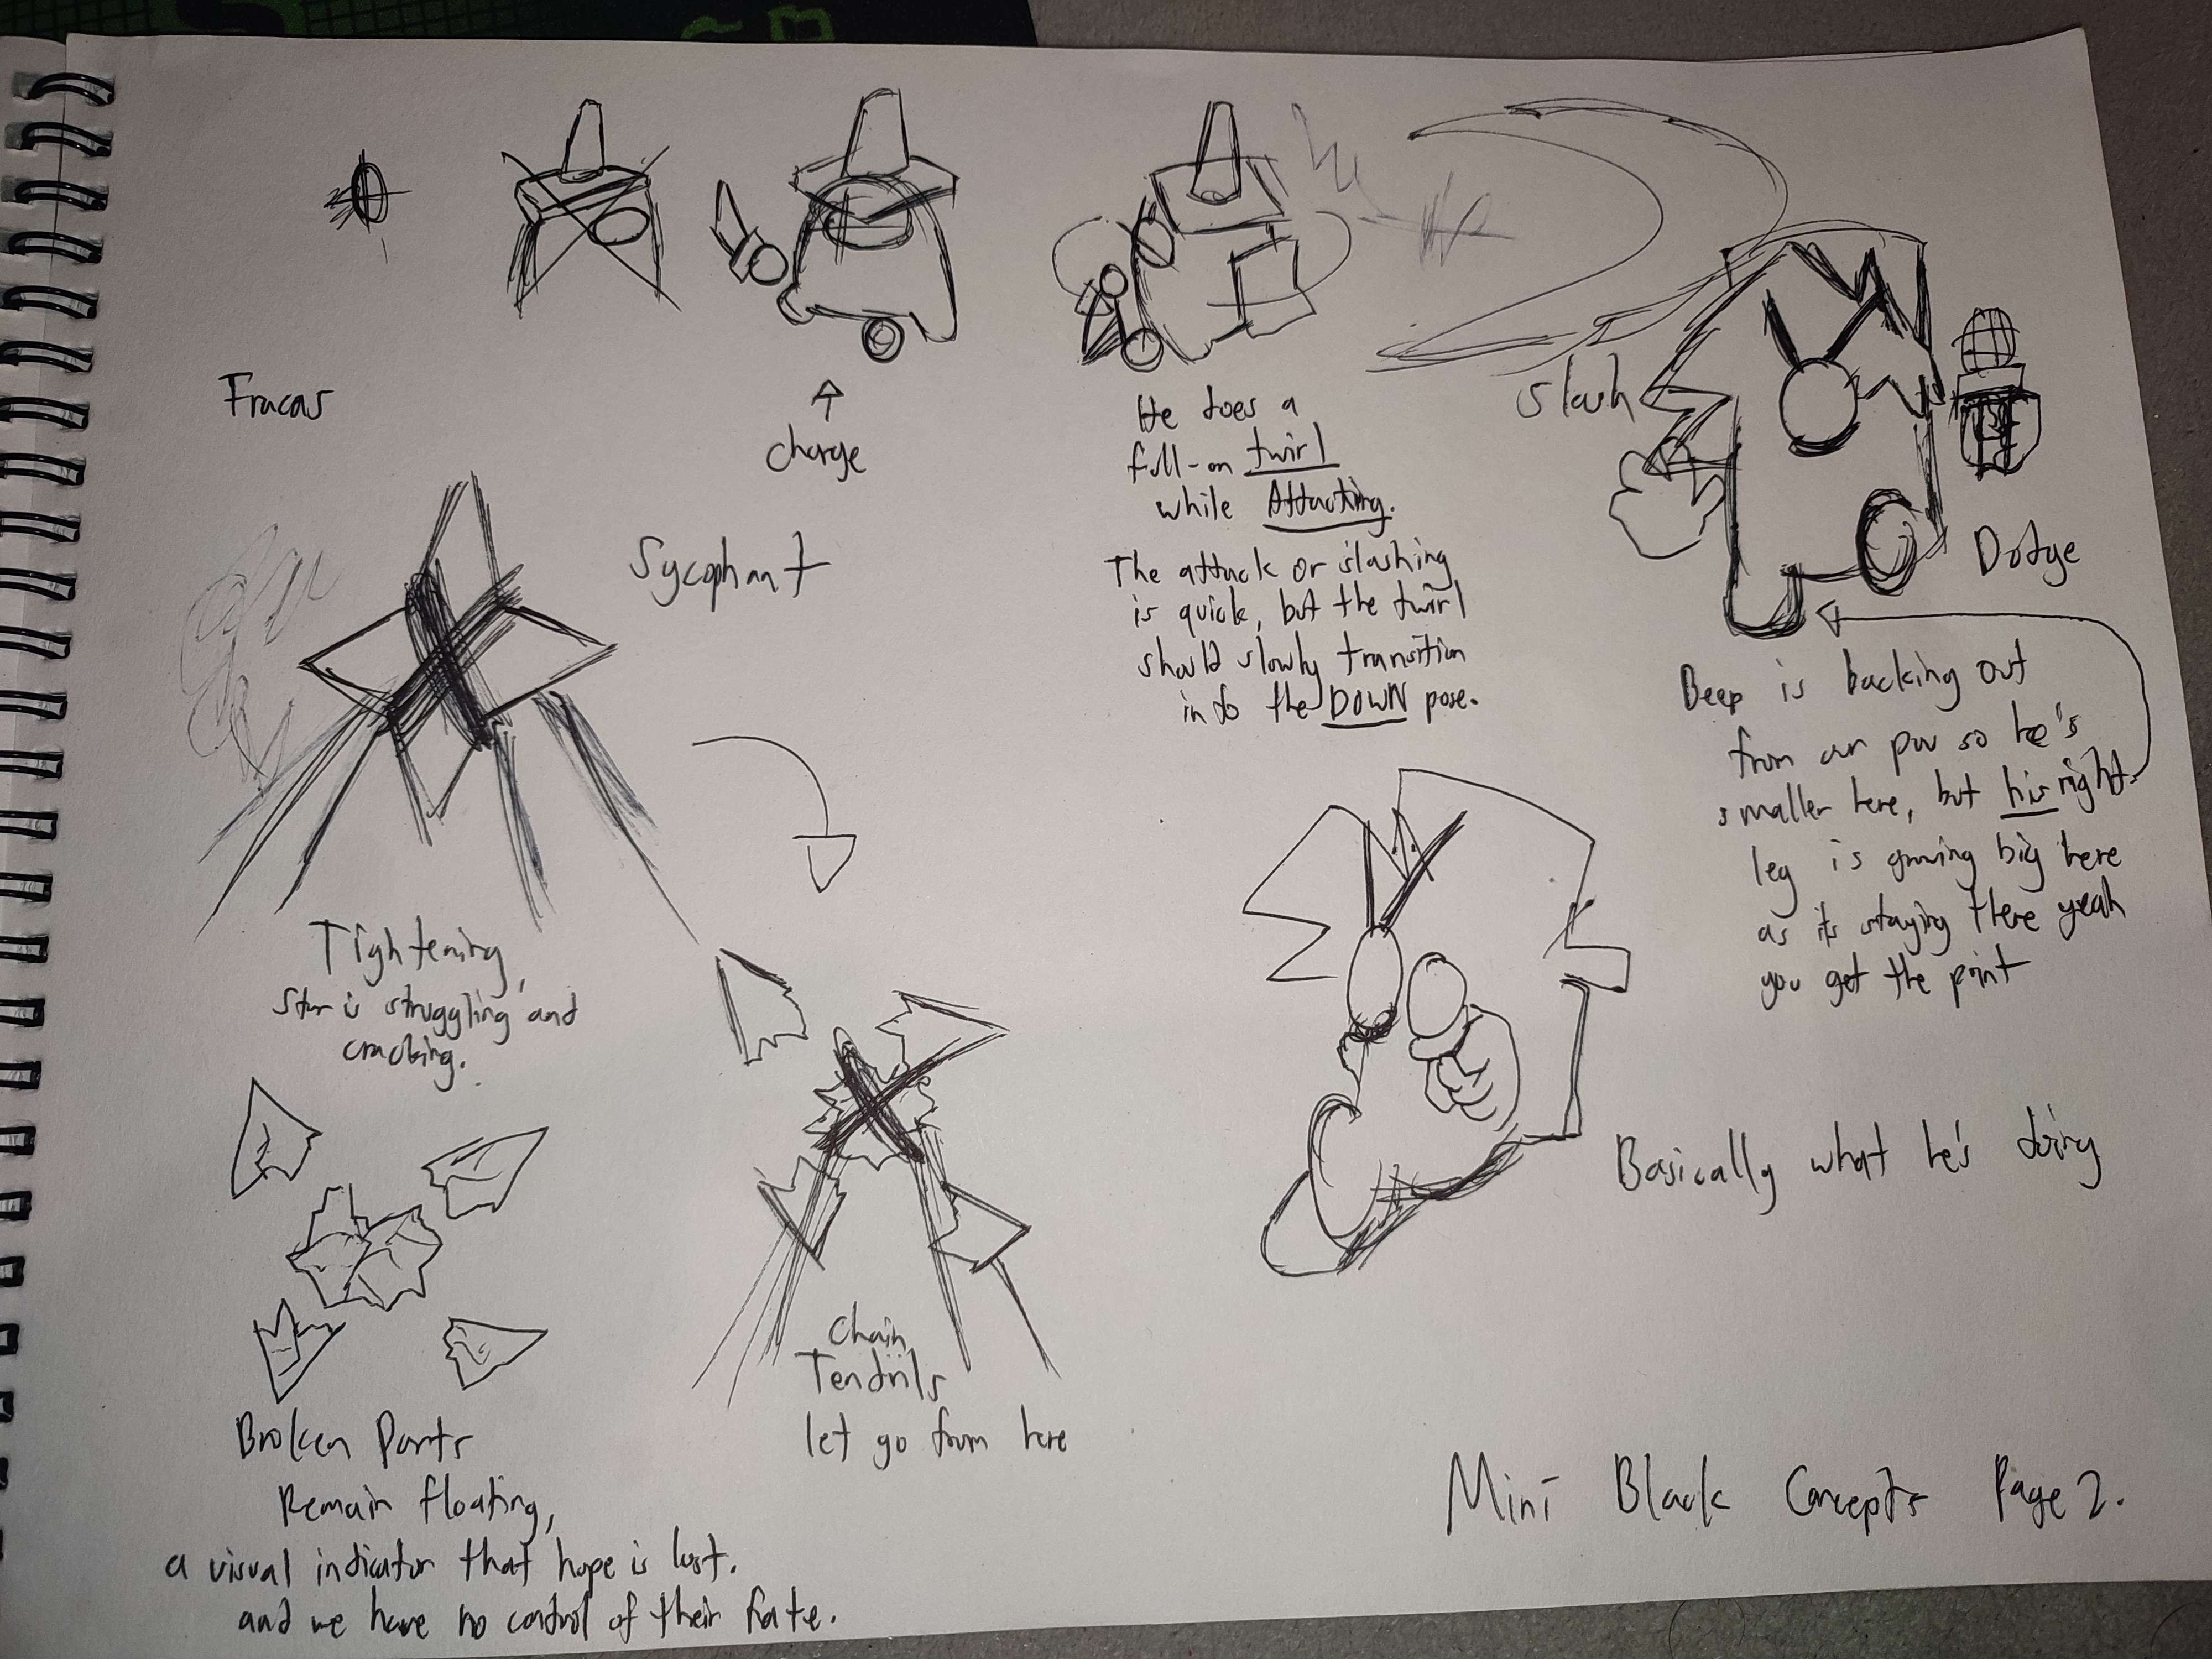 Fracas
Charge
He does a
full-on twirl
while Attacking.
The attack or slashing
is quick, but the twirl
should slowly transition
into the DOWN pose.
Slash
Dodge
Beep is backing out
from our pov so he's
smaller here, but his right
leg is growing big here
as its staying there yeah
you get the point
Sycophant
Tightening,
Star is struggling and
cracking.
Basically what he's doing
Chain
Tendrils
let go from here
Broken Parts
Remain floating,
a visual indicator that hope is lost.
and we have no control of their fate.
Mini Black Concepts Page 2.